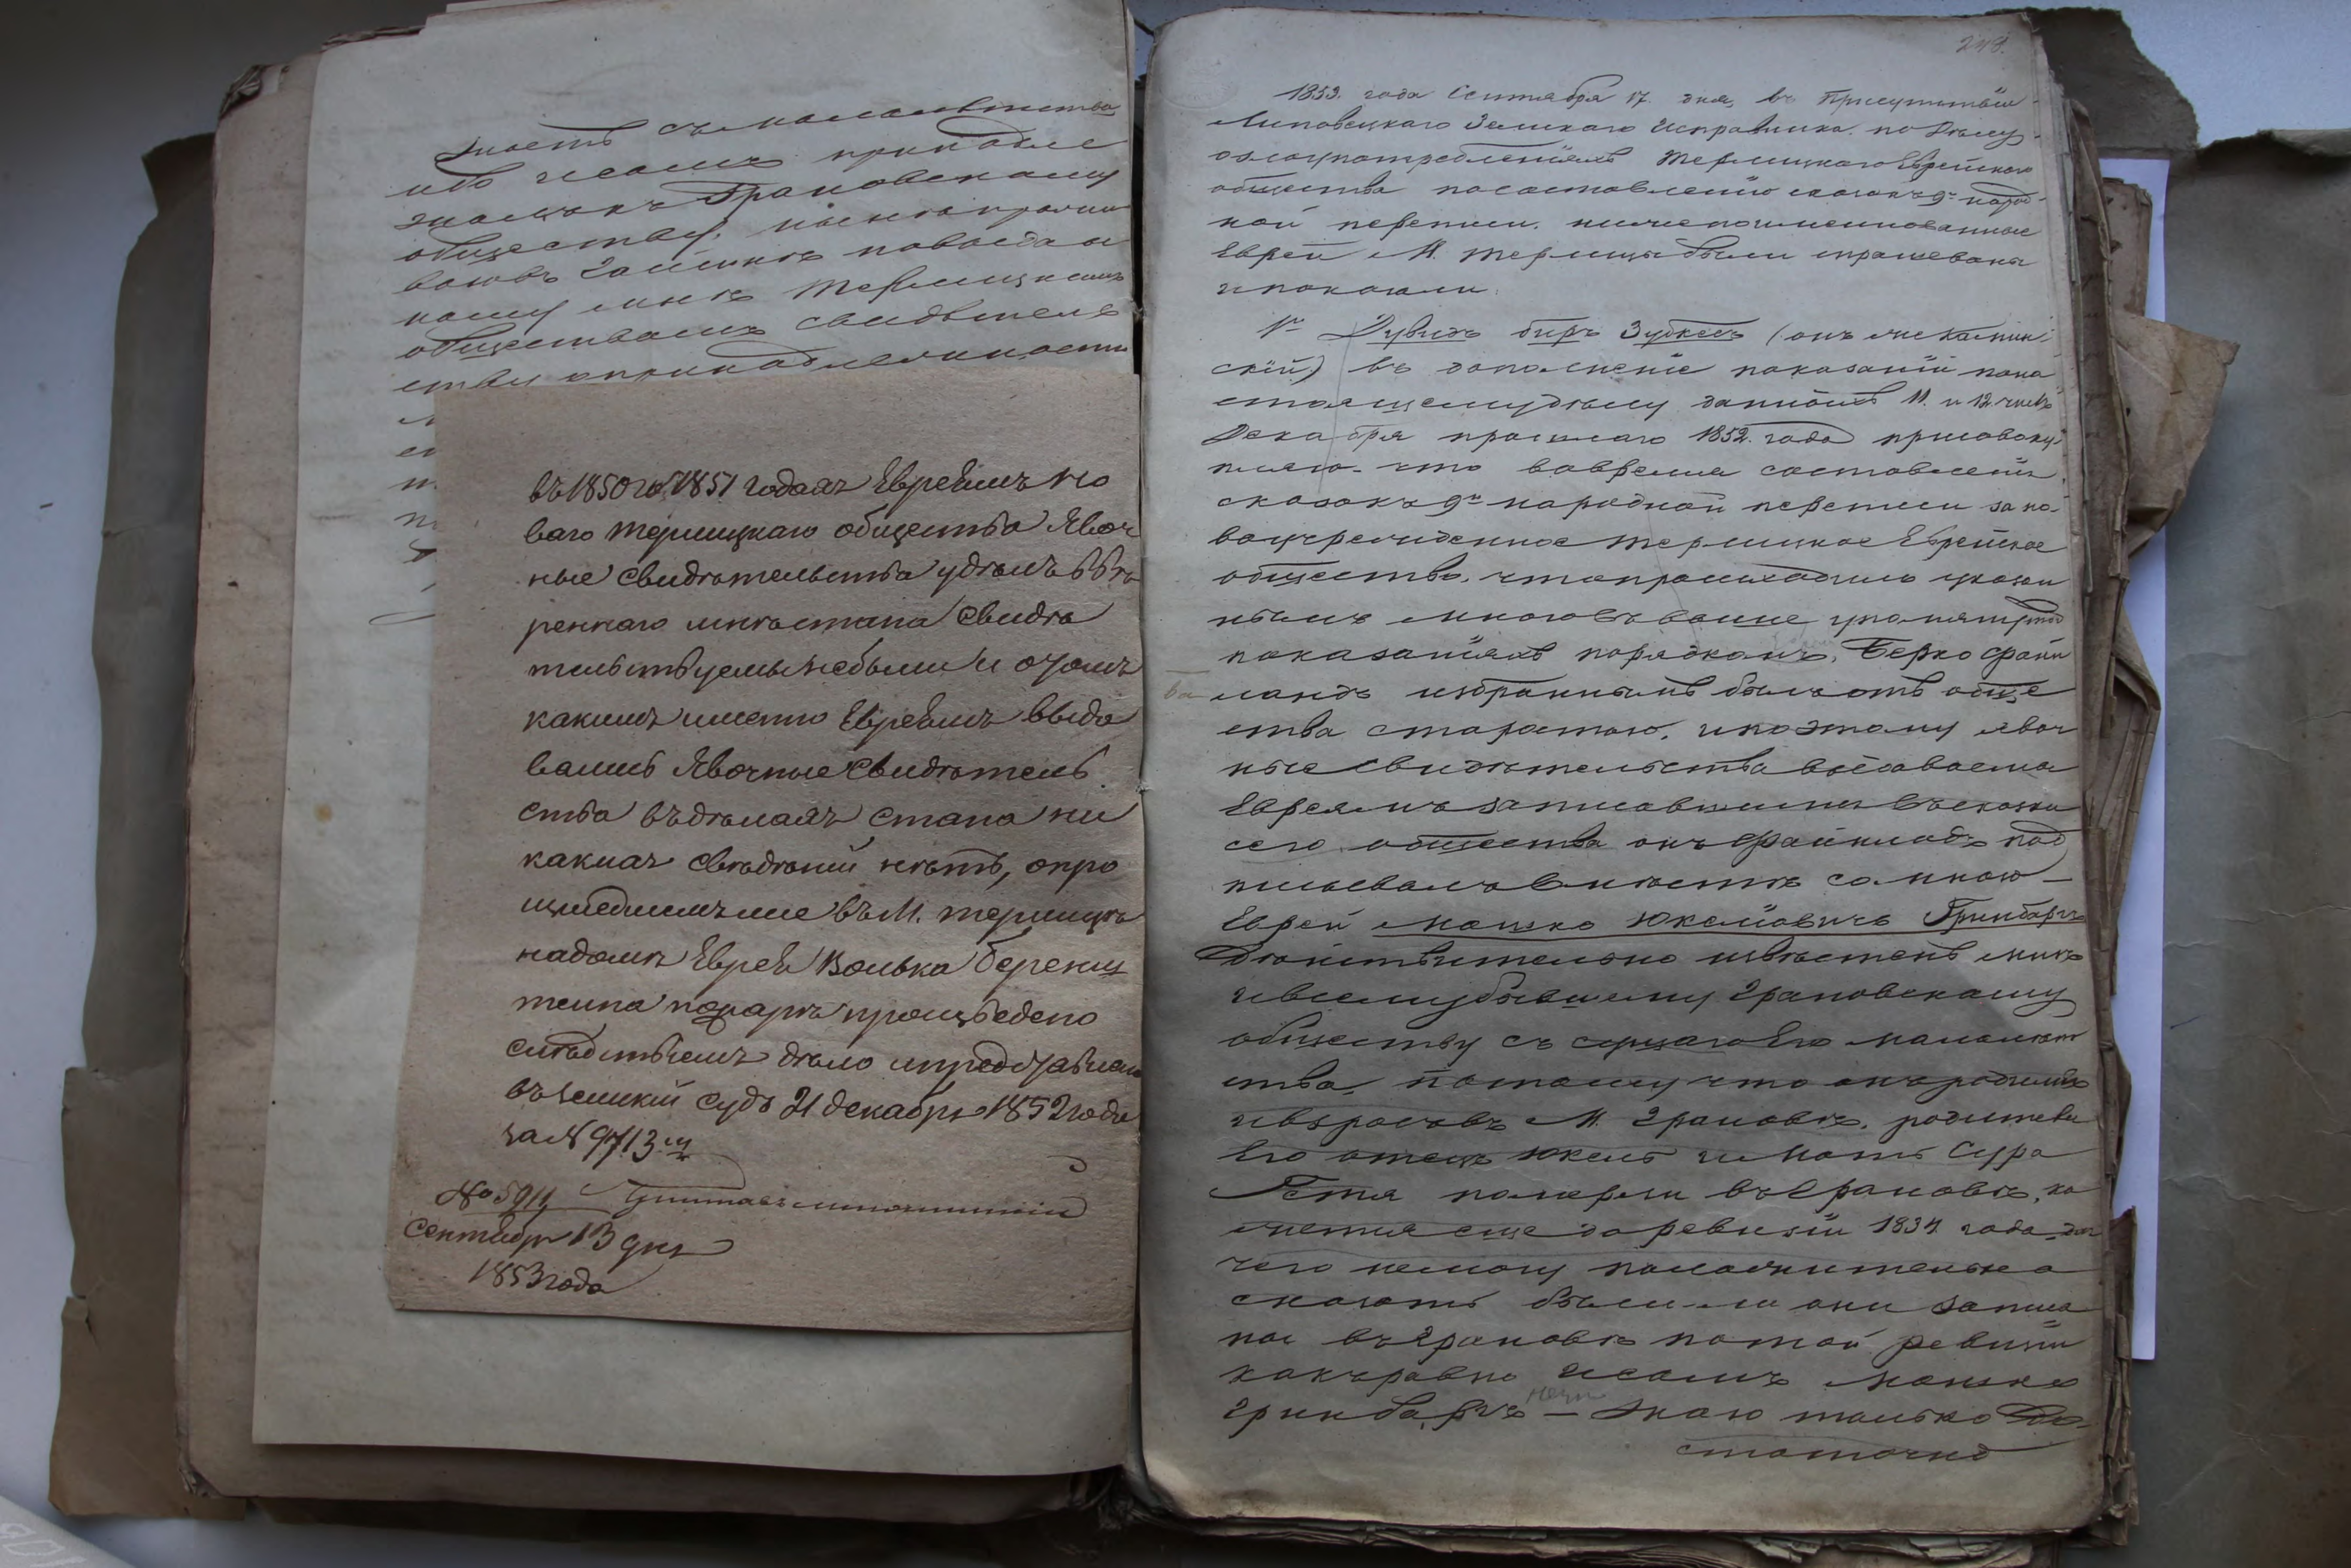 знаетъ съ малолѣтства
что и самъ принадле
жалъ къ Грановскому
обществу,
коему мнѣ Терлицкимъ
обществомъ свидѣтель
ству о принадлежности
въ 1850 и 1851 годахъ Евреямъ но
ваго Терлицкаго общества Явоч
ные свидѣтельства у дѣлъ ввѣ
реннаго мнѣ стана свидѣ
тельствуемы небыли и о томъ
какимъ именно Евреямъ выда
вались Явочные Свидѣтель
ства въ дѣлахъ стана ни
какихъ свѣдѣній нѣтъ, о про
изшедшемъ же въ М. Терлицѣ
на домѣ Еврея Волька Беренш
тейна пожарѣ произведено
слѣдствіемъ дѣло и представлено
въ земскій судъ 21 декабря 1852 года
за N 9713.
No 5911
Сентября 13 дня
1853 года
248.
1853. года Сентября 17. дня, въ присутствіи
Липовецкаго Земскаго Исправника. по дѣлу
о злоупотребленіяхъ Терлицкаго Еврейскаго
общества по составленію сказокъ 9й народ
ной переписи. нижепоименованные
Евреи М. Терлицы были спрашеваны
и показали.
1е Дувидъ Беръ Зудкесъ (онъ же Калин
скій) въ дополненіе показаній по на
стоящему дѣлу данныхъ 11. и 12. чиселъ
Декабря прошлаго 1852. года присовоку
пляю. что во время составленія
сказокъ 9й народной переписи за но
воучрежденное Терлицкое Еврейское
общество. что происходило указан
нымъ мною въ выше упомянутыхъ
показаніяхъ порядкомъ. Берко Фай
ландъ избраннымъ былъ отъ обще
ва
ства старостою. и поэтому явоч
ные свидѣтельства выдаваемы
Евреямъ записавшимся въ сказки
сего общества онъ Файнладъ под
писывалъ вмѣстѣ со мною —
Еврей Мошко Юкелiовичъ Гринбаргъ
дѣйствительно извѣстенъ мнѣ
и всему бывшему Грановскому
обществу съ самаго Его малолѣт
ства, потому что онъ родился
и взросъ въ М. Грановѣ. родители
Его отецъ Юкель и мать Сура
Рстя померли въ Грановѣ, ка
жется еще до ревизіи 1834 года, для
чего немогу положительно
сказать были-ли они записа
ны въ Грановѣ по той ревизіи
какъ равно и самъ Мошко
Гринбаргъ — знаю только до
статочно